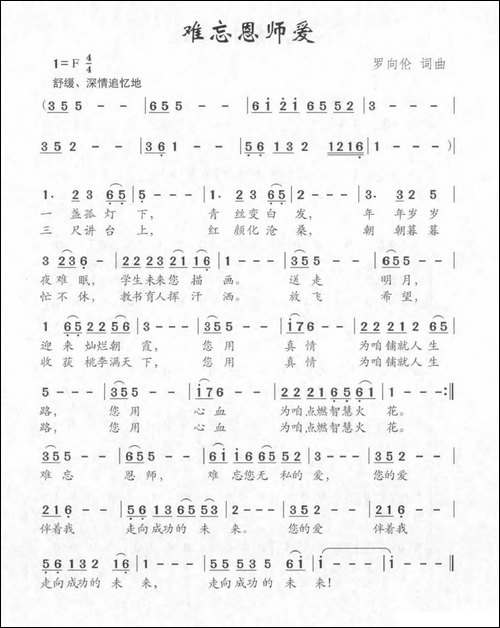 难忘恩师爱
1=F 4/4
罗向伦 词曲
舒缓、深情追忆地
(355 - - | 655 - - | 6i 2i 65 5 | 3 - - -
352 - - | 361 - - | 56 132 1216 | 1 - - - )
1· 23 65 | 5 - - - | 1· 23 65 | 2 - - - | 3· 32 5
一 盏孤 灯 下， 青 丝变 白 发， 年 年岁 岁
三 尺讲 台 上， 红 颜化 沧 桑， 朝 朝暮 暮
3 236 - | 22 23 21 16 | 1 - - - | 355 - - | 655 - -
夜难 眠， 学生未来您 描 画。 送 走 明 月，
忙不 休， 教书育人挥 汗 洒。 放 飞 希 望，
1 65 22 56 | 3 - - - | 355 - - | i76 - - | 22 212 65
迎 来 灿烂朝 霞， 您 用 真 情 为咱铺就人生
收 获 桃李满天 下， 您 用 真 情 为咱铺就人生
5 - - - | 355 - - | i76 - - | 22 21 65 61 | 1 - - - :‖
路， 您 用 心 血 为咱点燃智慧火 花。
路， 您 用 心 血 为咱点燃智慧火 花。
355 - - | 655 - - | 6i i665 6i | 3 - - - | 321 - -
难 忘 恩 师， 难 忘您无 私的 爱， 您的爱
216 - - | 56 13 65 53 | 5 - - - | 321 - - | 216 - -
伴着我 走向成功的 未 来。 您的爱 伴着我
56 132 16 | 1 - - - | 56 535 6i | i - - - | i - - - ‖
走向成功的 未 来， 走向成功的 未 来！